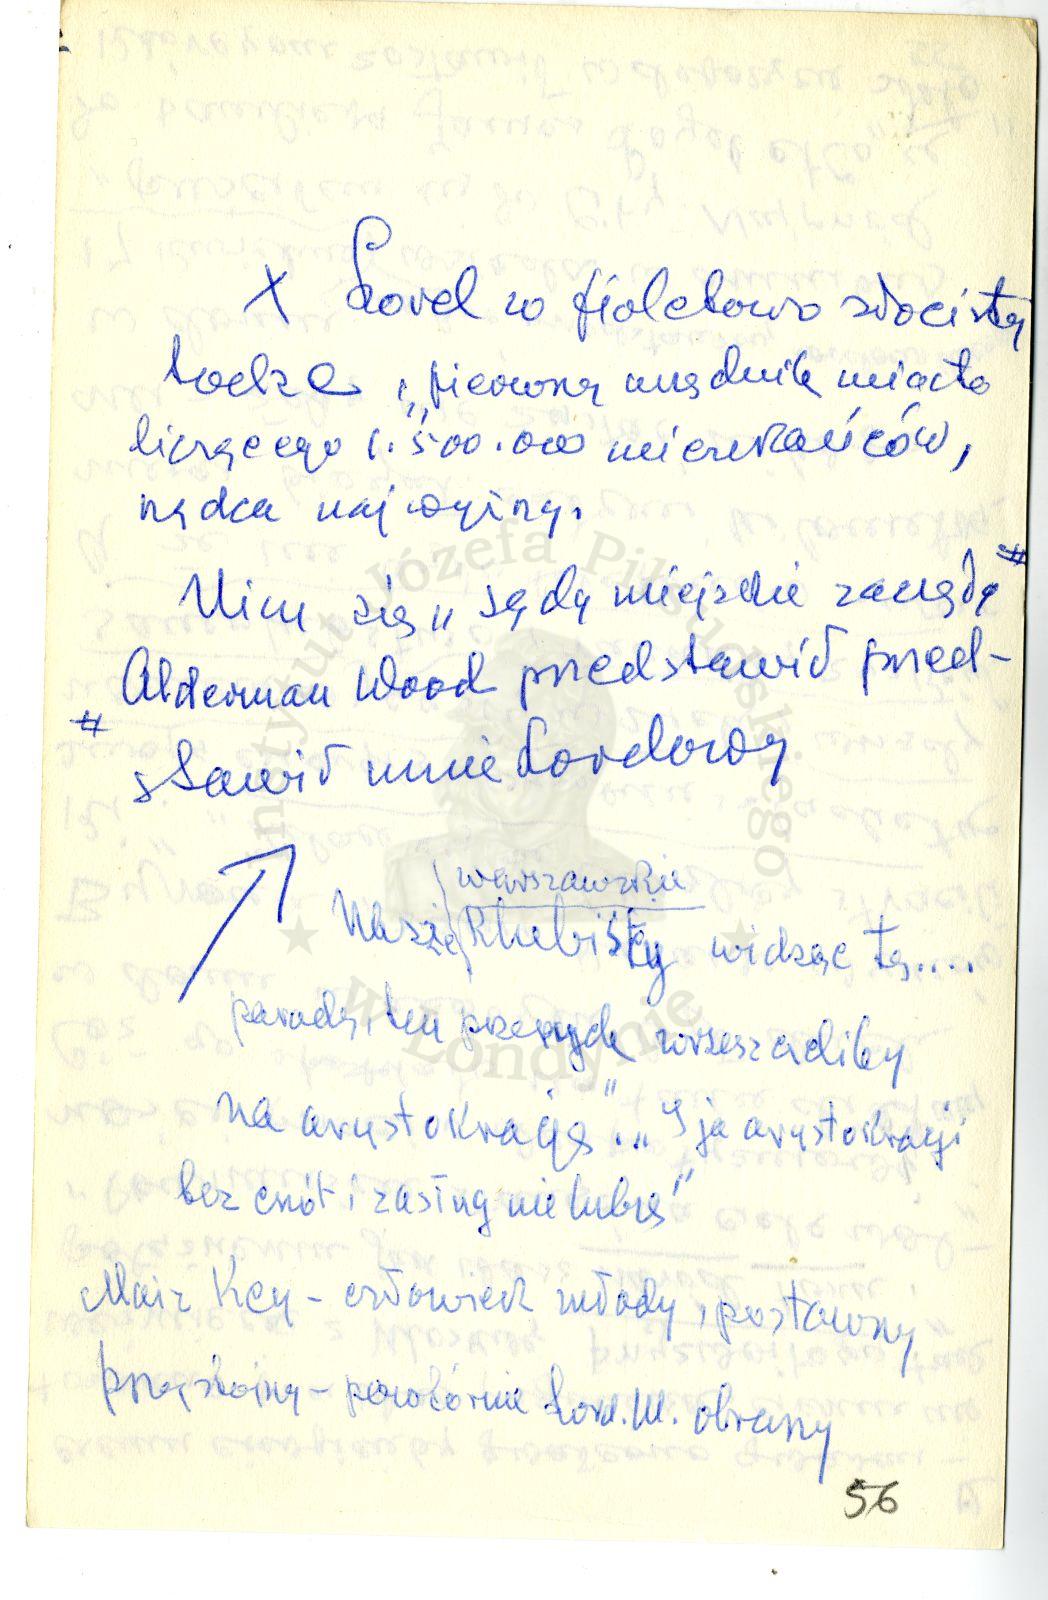 X Lord w fioletowo złocistej
todze, „pierwszy urzędnik miasta
liczącego 1.500.000 mieszkańców,
rządca najwyższy.
Nim się „sądy miejskie zaczęły #
Alderman Wood przedstawił przed-
# stawił mnie Lordowy
warszawskie
Nasze klubisty widząc tę....
paradę, ten przepych wrzeszczeliby
na arystokrację." „I ja arystokracji
bez cnót i zasług nie lubię"
Mair Key - człowiek młody, postawny
przystojny - powtórnie Lord. M. obrany
56
Instytut Józefa Piłsudskiego
w Londynie